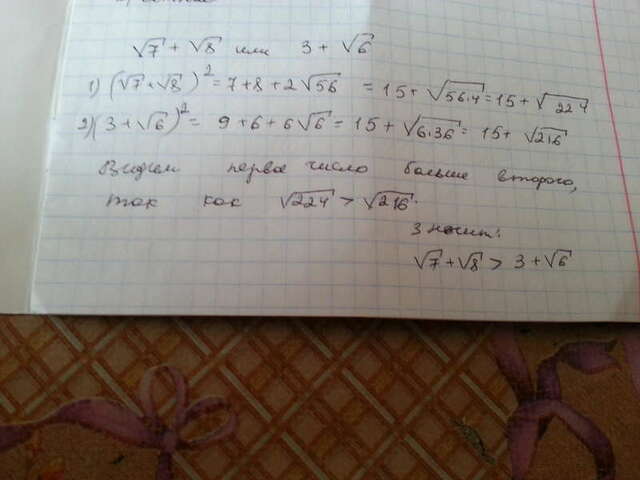 √7 + √8 или 3 + √6
1) (√7 + √8)² = 7+8+2√56 = 15+√56·4 = 15+√224
2) (3+√6)² = 9+6+6√6 = 15+√6·36 = 15+√216
Видим первое число больше второго,
так как √224 > √216.
Значит:
√7+√8 > 3+√6